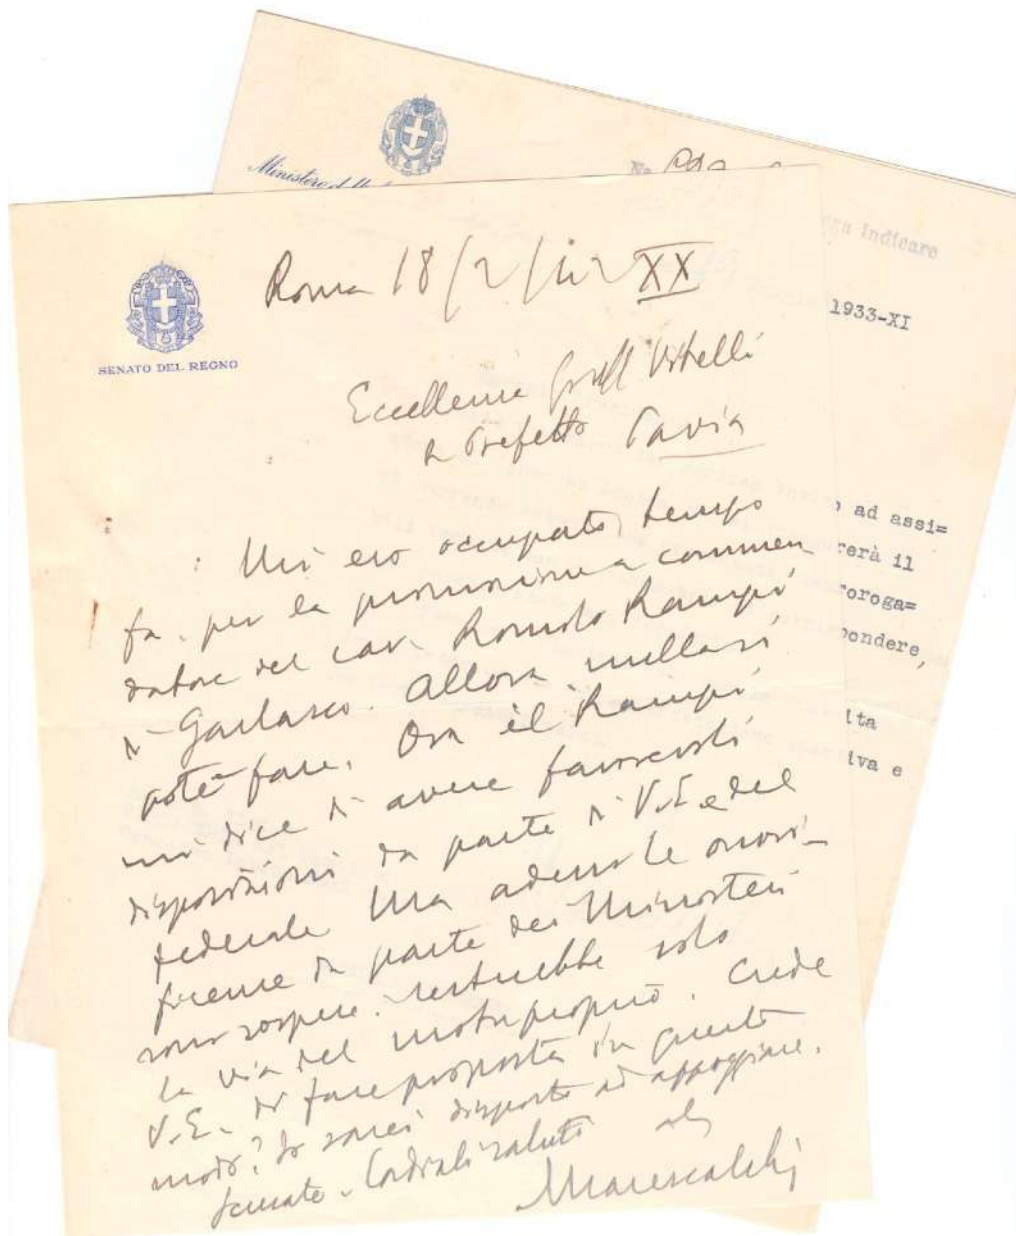 Ministero
No
indicare
1933-XI
ad assi=
rerà il
roroga=
pondere,
ita
iva e
SENATO DEL REGNO
Roma 18/2/42 XX
Eccellenza Vitelli
Prefetto Pavia
Mi ero occupato, tempo
fa, per la promozione a commen
datore del cav. Romolo Rampi
di Garlasco. Allora nulla si
poté fare. Ora il Rampi
mi dice di avere favorevoli
disposizioni da parte di V.E. e del
federale Ma adesso le onori-
ficenze da parte dei Ministeri
sono sospese. Resterebbe solo
la via del motuproprio. Crede
V.E. di fare proposta in questo
modo? Io sarei disposto ad appoggiare.
Cordiali saluti
Marescalchi